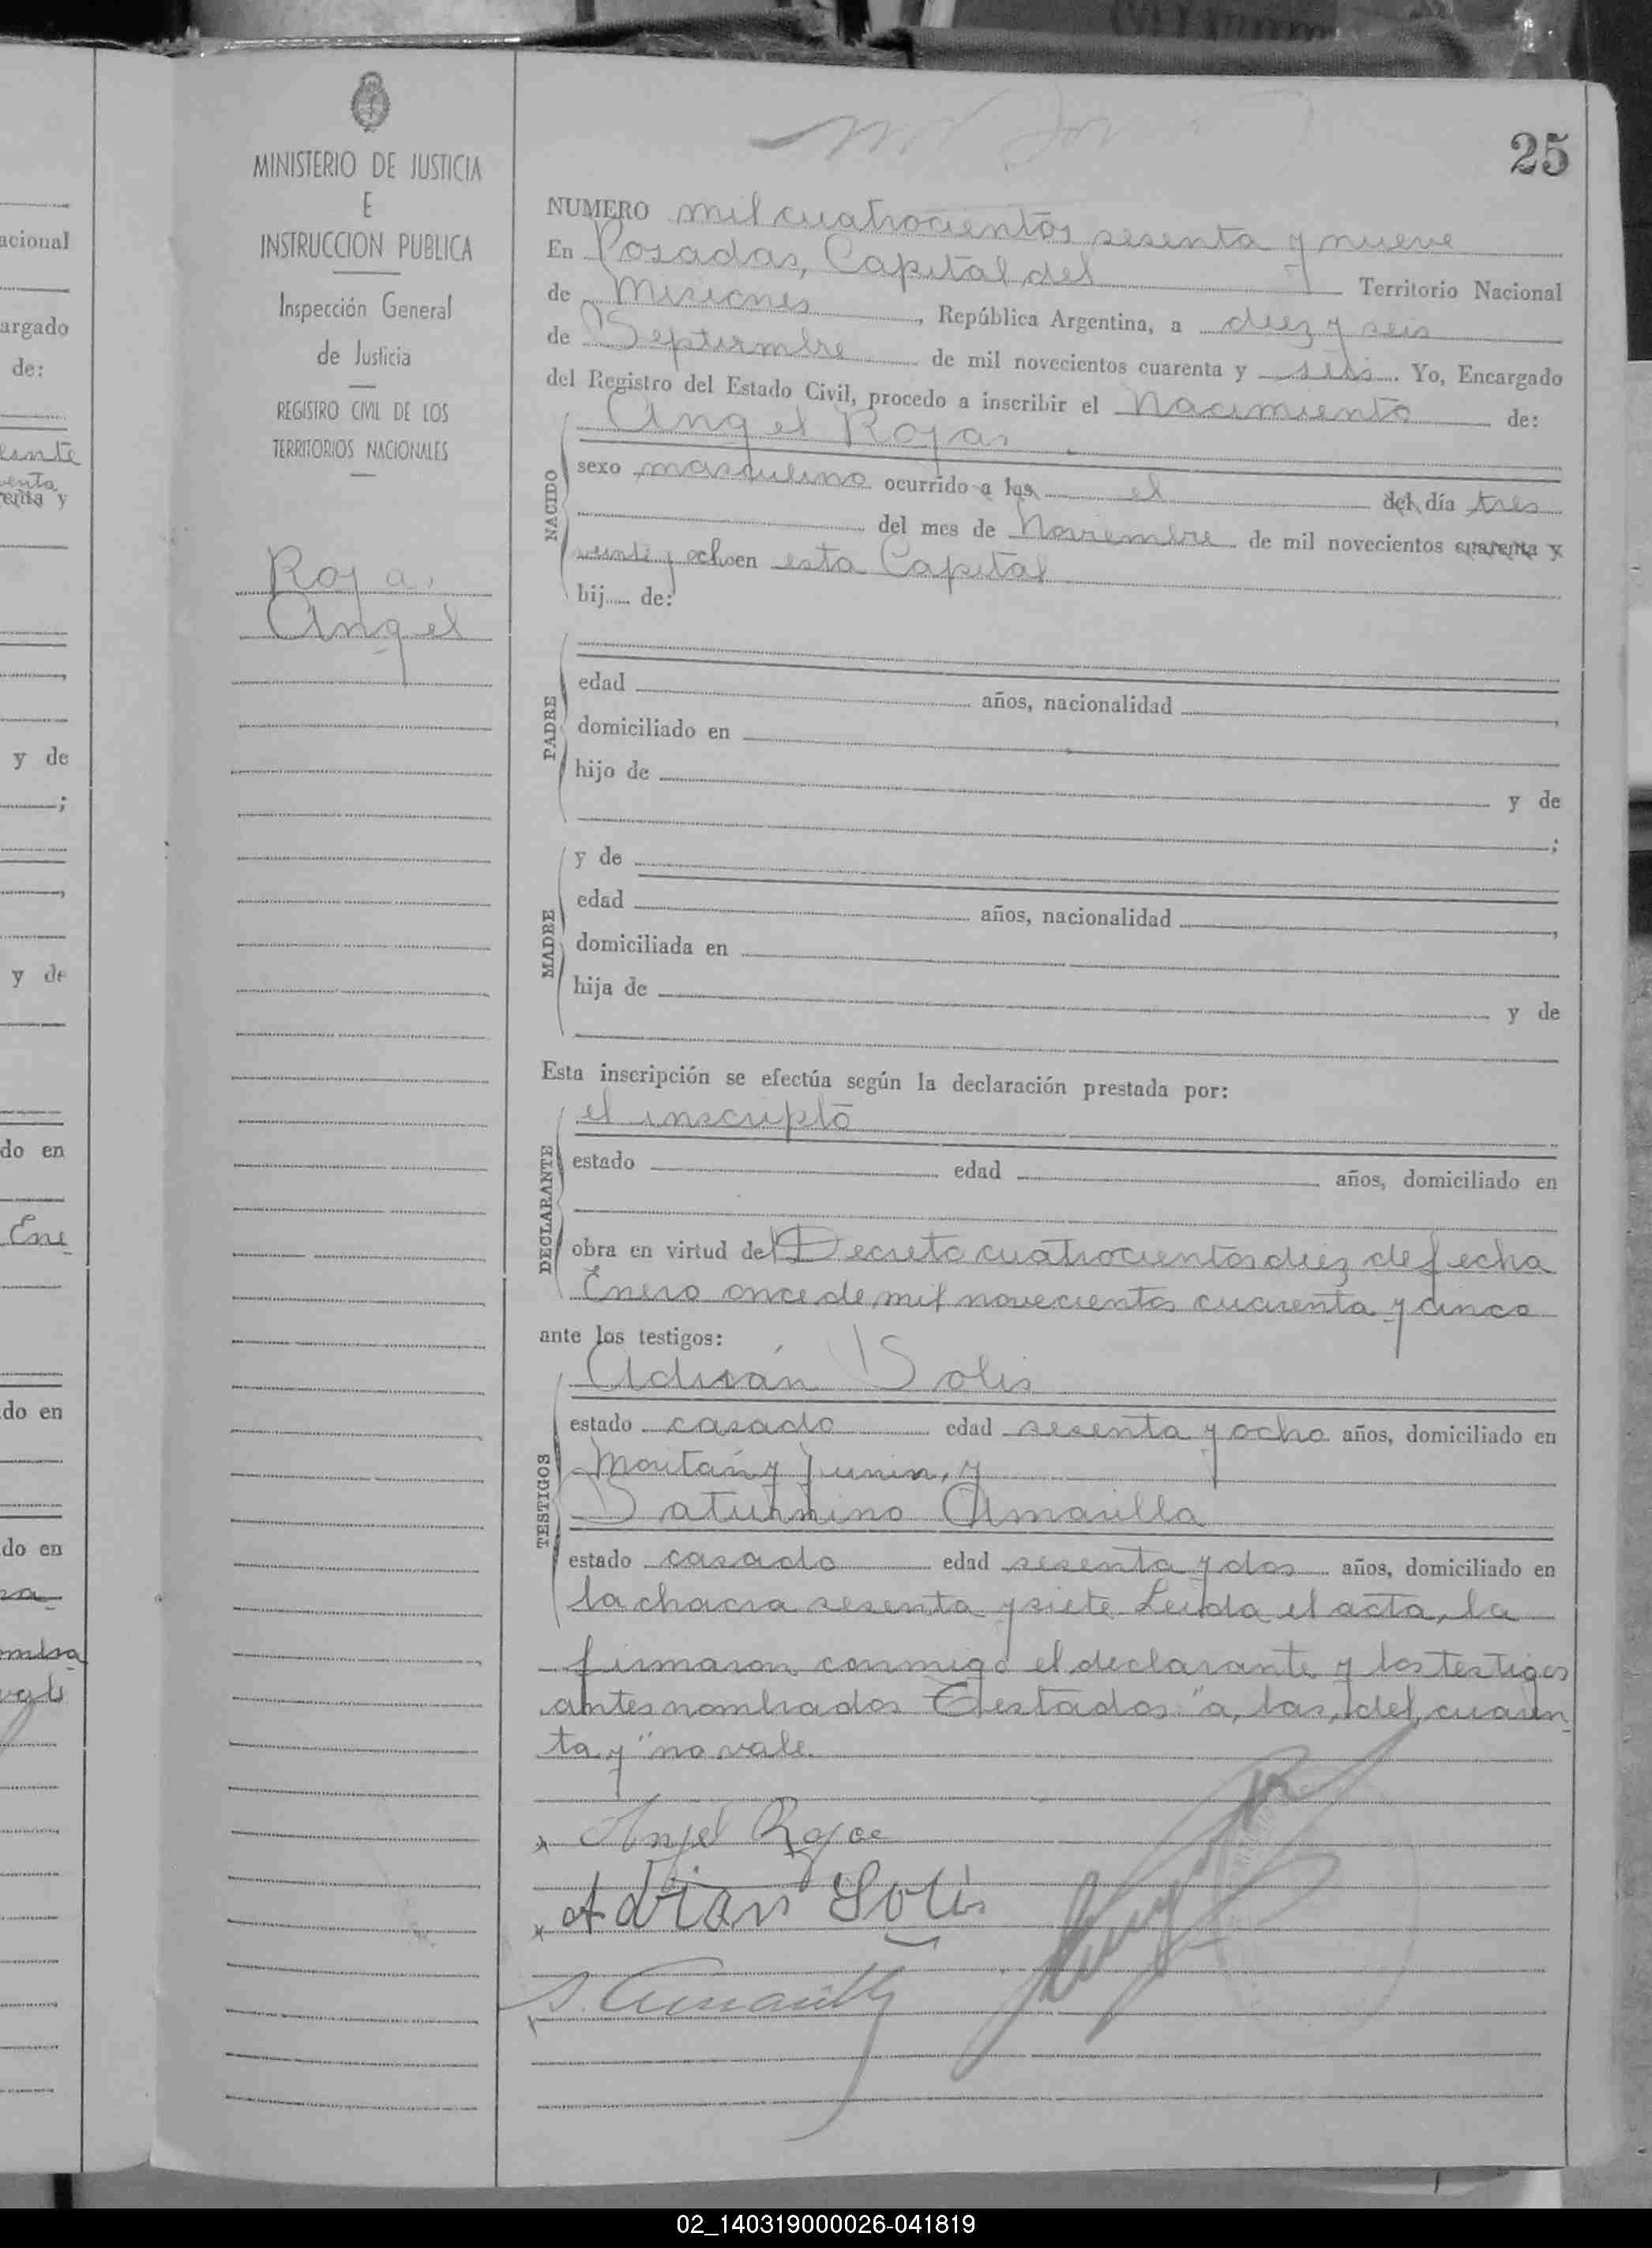 25
MINISTERIO DE JUSTICIA
E
INSTRUCCION PUBLICA
Inspección General
de Justicia
REGISTRO CIVIL DE LOS
TERRITORIOS NACIONALES
Rojas
Angel
NUMERO mil cuatrocientos sesenta y nueve
En Posadas, Capital del Territorio Nacional
de Misiones, República Argentina, a diez y seis
de Septiembre de mil novecientos cuarenta y seis. Yo, Encargado
del Registro del Estado Civil, procedo a inscribir el Nacimiento de:
NACIDO
Angel Rojas
sexo masculino ocurrido a las el del día tres
del mes de Noviembre de mil novecientos cuarenta y
veinte y ocho en esta Capital
hij de:
PADRE
edad años, nacionalidad ,
domiciliado en
hijo de y de
;
MADRE
y de
edad años, nacionalidad ,
domiciliada en
hija de y de
Esta inscripción se efectúa según la declaración prestada por:
DECLARANTE
el inscripto
estado edad años, domiciliado en
obra en virtud del Decreto cuatrocientos diez de fecha
Enero once de mil novecientos cuarenta y cinco
ante los testigos:
TESTIGOS
Adrián Solis
estado casado edad sesenta y ocho años, domiciliado en
y Junin, y
Saturnino Amarilla
estado casado edad sesenta y dos años, domiciliado en
la chacra sesenta y siete. Leida el acta, la
firmaron conmigo el declarante y los testigos
antes nombrados. Testados "a, las, del, cuaren
ta y" no vale.
Angel Rojas
Adrian Solis
S. Amarilla
acional
argado
de:
y de
;
y de
do en
Ene
do en
do en
02_140319000026-041819